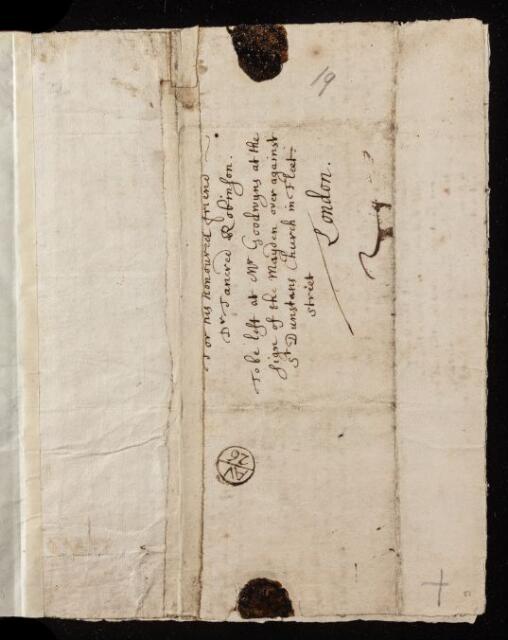 For his honoured friend
Dr Tancred Robinson.
To be left at Mr Goodwyns at the
sign of the Mayden over against
St Dunstans Church in Fleet-
street
London.
19
26